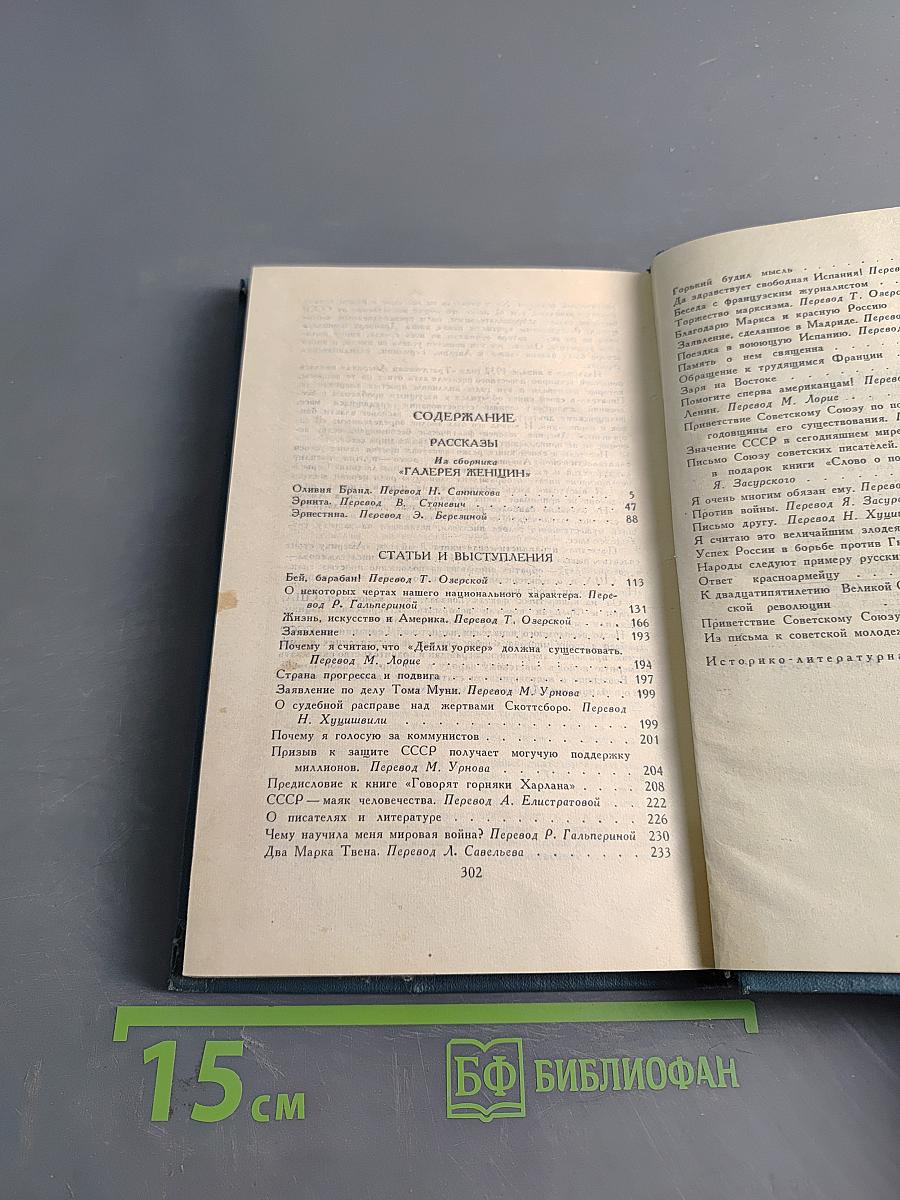 СОДЕРЖАНИЕ
РАССКАЗЫ
Из сборника
«ГАЛЕРЕЯ ЖЕНЩИН»
Оливия Бранд. Перевод Н. Санникова . . . . . . . . 5
Эрнита. Перевод В. Станевич . . . . . . . . . 47
Эрнестина. Перевод Э. Березиной . . . . . . . . 88
СТАТЬИ И ВЫСТУПЛЕНИЯ
Бей, барабан! Перевод Т. Озерской . . . . . . . . 113
О некоторых чертах нашего национального характера. Пере-
вод Р. Гальпериной . . . . . . . . . . . 131
Жизнь, искусство и Америка. Перевод Т. Озерской . . . 166
Заявление . . . . . . . . . . . . . . 193
Почему я считаю, что «Дейли уоркер» должна существовать.
Перевод М. Лорие . . . . . . . . . . . 194
Страна прогресса и подвига . . . . . . . . . . 197
Заявление по делу Тома Муни. Перевод М. Урнова . . . 199
О судебной расправе над жертвами Скоттсборо. Перевод
Н. Хуцишвили . . . . . . . . . . . . 199
Почему я голосую за коммунистов . . . . . . . . 201
Призыв к защите СССР получает могучую поддержку
миллионов. Перевод М. Урнова . . . . . . . . 204
Предисловие к книге «Говорят горняки Харлана» . . . . 208
СССР — маяк человечества. Перевод А. Елистратовой . . 222
О писателях и литературе . . . . . . . . . . 226
Чему научила меня мировая война? Перевод Р. Гальпериной 230
Два Марка Твена. Перевод Л. Савельева . . . . . . 233
302
Горький будил мысль . . . . .
Да здравствует свободная Испания!
Беседа с французским журналистом . .
Торжество марксизма. Перевод Т.
Благодарю Маркса и красную Россию
Заявление, сделанное в Мадриде.
Поездка в воюющую Испанию.
Память о нем священна . . . .
Обращение к трудящимся Франции
Заря на Востоке . . . . . .
Помогите сперва американцам!
Ленин. Перевод М. Лорие . . .
Приветствие Советскому Союзу по
годовщины его существования.
Значение СССР в сегодняшнем мире
Письмо Союзу советских писателей.
в подарок книги «Слово о
Я. Засурского . . . . .
Я очень многим обязан ему.
Против войны. Перевод Я.
Письмо другу. Перевод Н.
Я считаю это величайшим
Успех России в борьбе против
Народы следуют примеру
Ответ красноармейцу . . .
К двадцатипятилетию Великой
ской революции . . . .
Приветствие Советскому Союзу
Из письма к советской
15 см
БФ БИБЛИОФАН